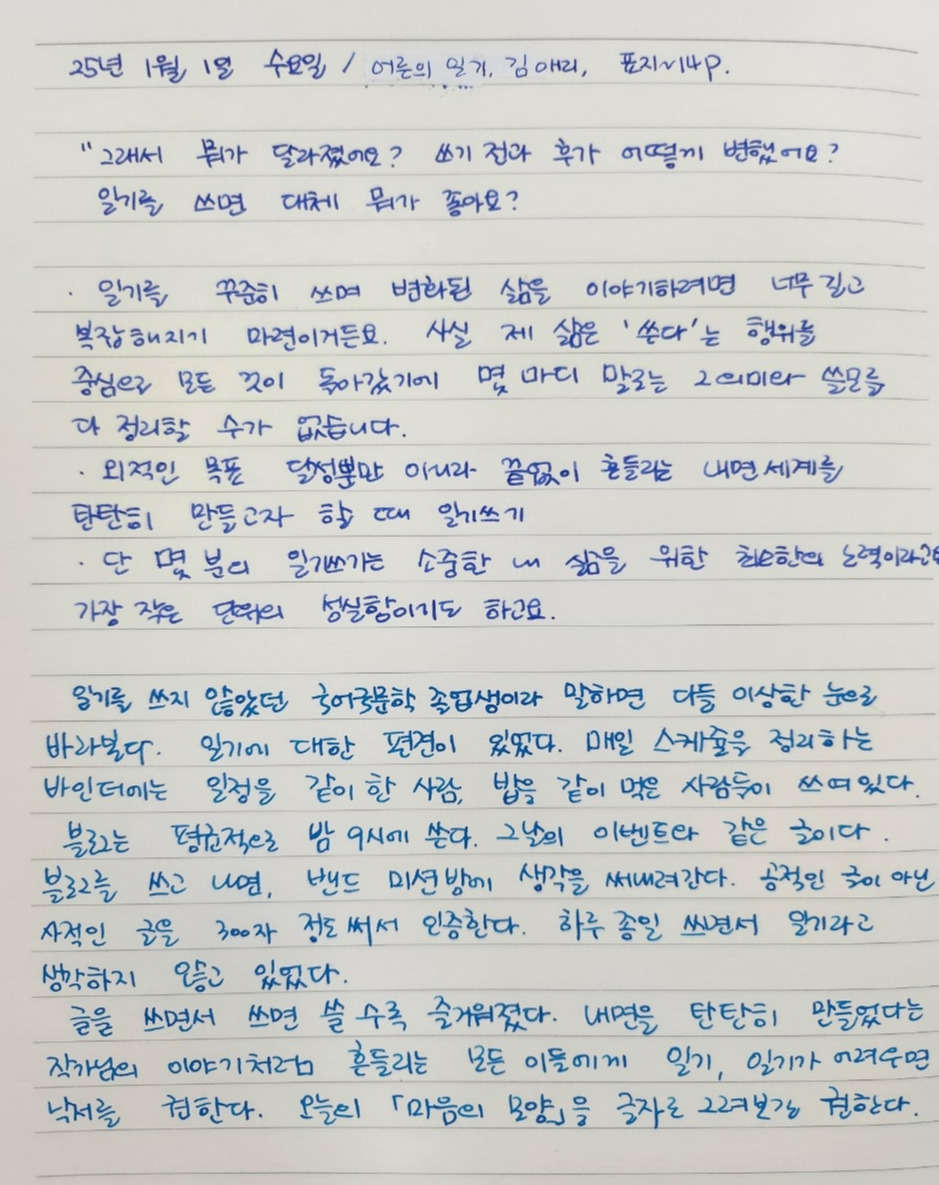 25년 1월 1일 수요일 / 어른의 일기, 김애리, 표지~14p.
"그래서 뭐가 달라졌어요? 쓰기 전과 후가 어떻게 변했어요?
일기를 쓰면 대체 뭐가 좋아요?
· 일기를 꾸준히 쓰며 변화된 삶을 이야기하려면 너무 길고
복잡해지기 마련이거든요. 사실 제 삶은 '쓴다'는 행위를
중심으로 모든 것이 돌아갔기에 몇 마디 말로는 그 의미와 쓸모를
다 정리할 수가 없습니다.
· 외적인 목표 달성뿐만 아니라 끝없이 흔들리는 내면세계를
탄탄히 만들고자 할 때 일기쓰기
· 단 몇 분의 일기쓰기는 소중한 내 삶을 위한 최소한의 노력이라고요
가장 작은 단위의 성실함이기도 하고요.
일기를 쓰지 않았던 국어국문학 졸업생이라 말하면 다들 이상한 눈으로
바라보다. 일기에 대한 편견이 있었다. 매일 스케줄을 정리하는
바인더에는 일정을 같이 한 사람, 밥을 같이 먹은 사람들이 쓰여있다.
블로그는 평균적으로 밤 9시에 쓴다. 그날의 이벤트와 같은 글이다.
블로그를 쓰고 나면, 밴드 미션방에 생각을 써내려간다. 공적인 글이 아닌
사적인 글을 300자 정도 써서 인증한다. 하루 종일 쓰면서 일기라고
생각하지 않고 있었다.
글을 쓰면서 쓰면 쓸 수록 즐거워졌다. 내면을 탄탄히 만들었다는
작가님의 이야기처럼 흔들리는 모든 이들에게 일기, 일기가 어려우면
낙서를 권한다. 오늘의 「마음의 모양」을 글자로 그려보길 권한다.